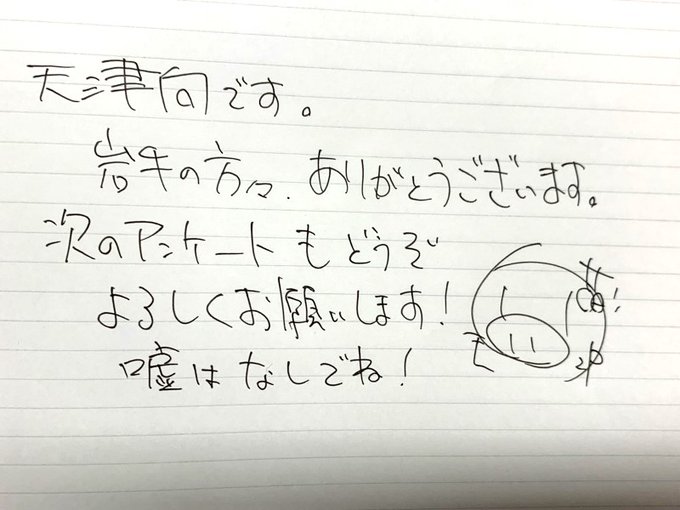 天津向です。
岩手の方々、ありがとうございます。
次のアンケートもどうぞ
よろしくお願いします!
嘘はなしでね!